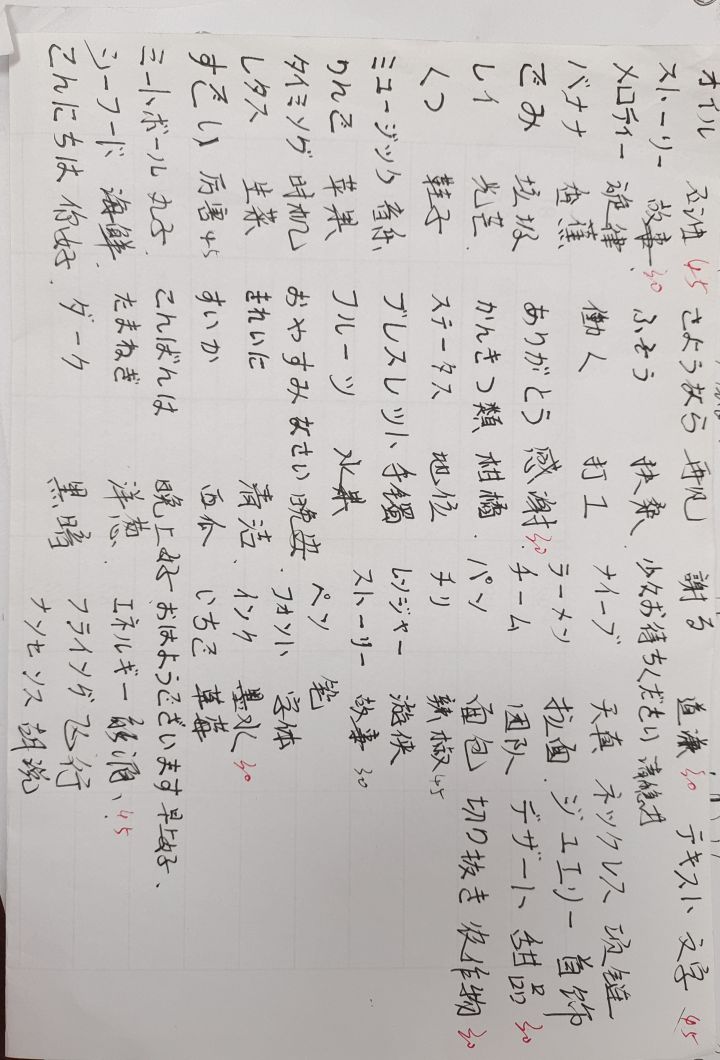 オイル 石油 45 さようなら 再见 謝る 道歉 30 テキスト 文字 45
ストーリー 故事 30 ふそう 扶桑. 少々お待ちください 请稍等
メロディー 旋律. 働人 打工 ナイーブ 天真 ネックレス 项链
バナナ 香蕉 ありがとう 感谢 30 ラーメン 拉面. ジュエリー 首饰
ごみ 垃圾 かんきつ類 柑橘. チーム 团队 デザート 甜品 30
レイ 光芒. ステータス 地位 パン 面包 切り抜き 农作物 30
くつ 鞋子 ブレスレット 手镯 チリ 辣椒 45
ミュージック 音乐 フルーツ 水果 レンジャー 游侠
りんご 苹果 おやすみなさい 晚安. ストーリー 故事 30
タイミング 时机 きれいに 清洁. ペン 笔
レタス 生菜 すいか 西瓜 フォント 字体
すごい 厉害 45 こんばんは 晚上好 インク 墨水 30
ミートボール 丸子. たまねぎ 洋葱. いちご 草莓
シーフード 海鲜. ダーク 黑暗 おはようございます 早上好、
こんにちは 你好. エネルギー 能源、45
フライング 飞行
ナンセンス 胡说